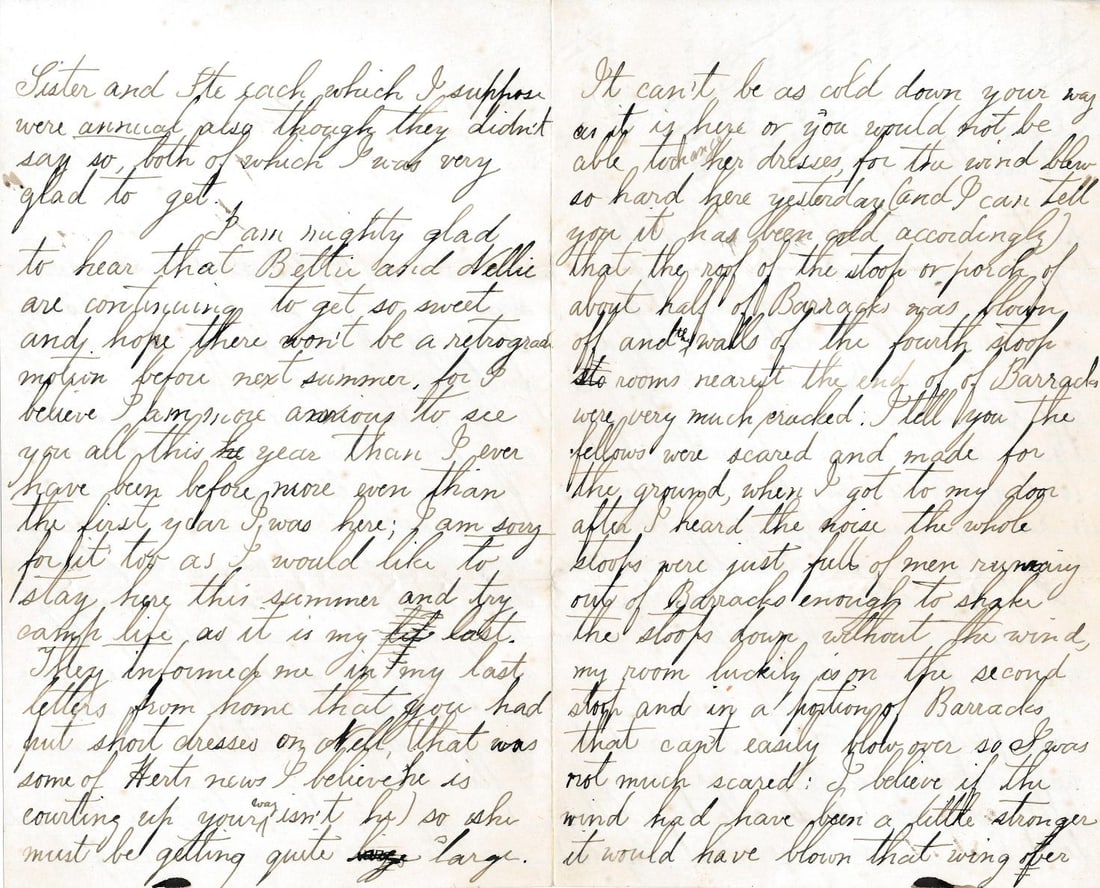 Sister and Ite each which I suppose
were annual also though they didn't
say so, both of which I was very
glad to get.
I am mighty glad
to hear that Bettie and Nellie
are continuing to get so sweet
and hope there won't be a retrograd
motion before next summer, for I
believe I am more anxious to see
you all this he year than I ever
have been before, more even than
the first year I was here; I am sorry
for it too as I would like to
stay here this summer and try
camp life as it is my last.
They informed me in my last
letters from home that you had
put short dresses on Nell, that was
some of Herts news I believe he is
courting up your way isn't he) so she
must be getting quite large.
It can't be as cold down your way
as it is here or you would not be
able to change her dresses, for the wind blew
so hard here yesterday (and I can tell
you it has been cold accordingly)
that the roof of the stoop or porch of
about half of Barracks was blown
off and the walls of the fourth stoop
sto rooms nearest the end of of Barracks
were very much cracked. I tell you the
fellows were scared and made for
the ground, when I got to my door
after I heard the noise the whole
stoops were just full of men running
out of Barracks enough to shake
the stoops down without the wind,
my room luckily is on the second
stoop and in a portion of Barracks
that can't easily blow over so I was
not much scared: I believe if the
wind had have been a little stronger
it would have blown that wing over